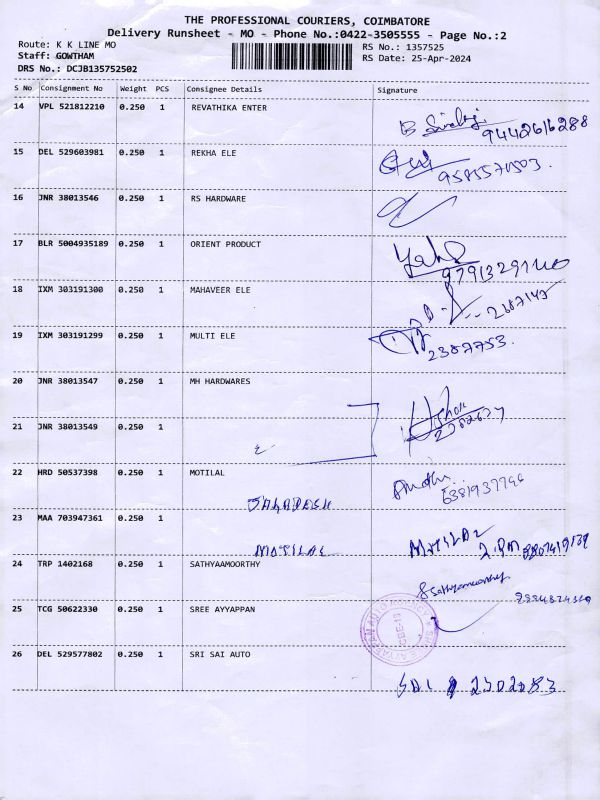 THE PROFESSIONAL COURIERS, COIMBATORE
Delivery Runsheet - MO - Phone No.:0422-3505555 - Page No.:2
Route: K K LINE MO
RS No.: 1357525
Staff: GOWTHAM
RS Date: 25-Apr-2024
DRS No.: DCJB135752502
S No Consignment No Weight PCS Consignee Details Signature
14 VPL 521812210 0.250 1 REVATHIKA ENTER
9442616288
15 DEL 529603981 0.250 1 REKHA ELE
16 JNR 38013546 0.250 1 RS HARDWARE
17 BLR 5004935189 0.250 1 ORIENT PRODUCT
18 IXM 303191300 0.250 1 MAHAVEER ELE
19 IXM 303191299 0.250 1 MULTI ELE
2387753.
20 JNR 38013547 0.250 1 MH HARDWARES
21 JNR 38013549 0.250 1
22 HRD 50537398 0.250 1 MOTILAL
23 MAA 703947361 0.250 1
MOTILAL
24 TRP 1402168 0.250 1 SATHYAAMOORTHY
Sathyamoorthy
25 TCG 50622330 0.250 1 SREE AYYAPPAN
26 DEL 529577802 0.250 1 SRI SAI AUTO
SAI